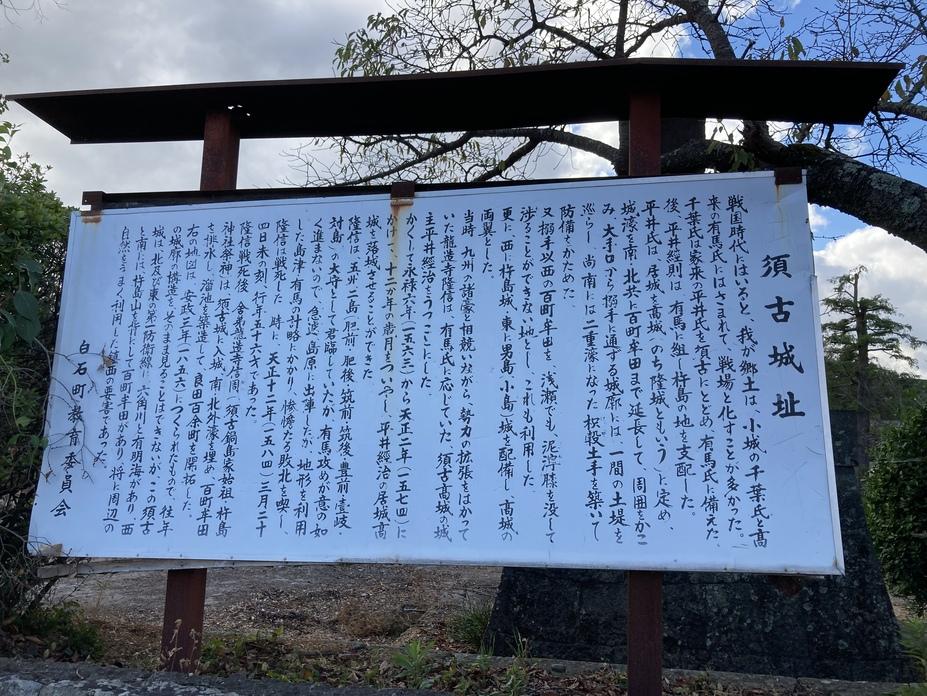 須古城址
戦国時代にはいると、我が郷土は、小城の千葉氏と高
来の有馬氏にはさまれて、戦場と化すことが多かった。
千葉氏は家来の平井氏を須古にとどめ、有馬氏に備えた。
後、平井經則は、有馬に組し杵島の地を支配した。
平井氏は、居城を高城(のち隆城ともいう)に定め、
城濠を南、北共に百町牟田まで延長して、周囲をかこ
み、大手口から搦手に通する城廓には、一間の土堤を
巡らし、尚、南には二重濠になった枳殻土手を築いて
防備をかためた。
又、搦手以西の百町牟田を、浅瀬でも、泥濘膝を没して
渉ることができない地とし、これも利用した。
更に、西に杵島城、東に男島(小島)城を配備し、高城の
両翼とした。
当時、九州の諸豪が相競いながら、勢力の拡張をはかって
いた龍造寺隆信は、有馬氏に応じていた、須古高城の城
主平井經治をうつことにした。
かくして、永禄六年(一五六三)から天正二年(一五七四)に
かけて、十二年の歳月をついやし、平井經治の居城高
城を落城させることができた。
隆信は、五州二島(肥前・肥後・筑前・筑後・豊前・壹岐・
対島)の大守として君臨していたが、有馬攻めが意の如
く進まないので、急遽、島原に出陣したが、地形を利用
した島津、有馬の計略にかかり、惨憺たる敗北を喫し、
隆信は戦死した。時に、天正十二年(一五八四)三月二十
四日未の刻、行年五十六才であった。
隆信戦死後、舎弟龍造寺信周(須古鍋島家始祖・杵島
神社祭神)は、須古城に入城、南、北外濠を埋め、百町牟田
を排水し、溜池を築造して、良田百余町を開拓した。
右の地図は、安政三年(一八五六)につくられたもので、往年
の城廓の構造を、そのまま見ることはできないが、この須古
城は、北及び東の第一防衛線に六角川と有明海があり、西
と南には、杵島山を楯にして百町牟田があり、将に周辺の
自然をうまく利用した鎮西の要害であった。
白石町教育委員会